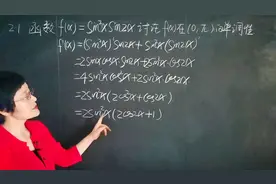 21 函数 f(x)=sin²x sin2x 讨论 f(x)在(0,π)的单调性
f'(x)=(sin²x)'sin2x+sin²x(sin2x)'
=2sinxcosx sin2x+2sin²x cos2x
=4sin²x cos²x+2sin²x cos2x
=2sin²x(2cos²x+cos2x)
=2sin²x(2cos2x+1)